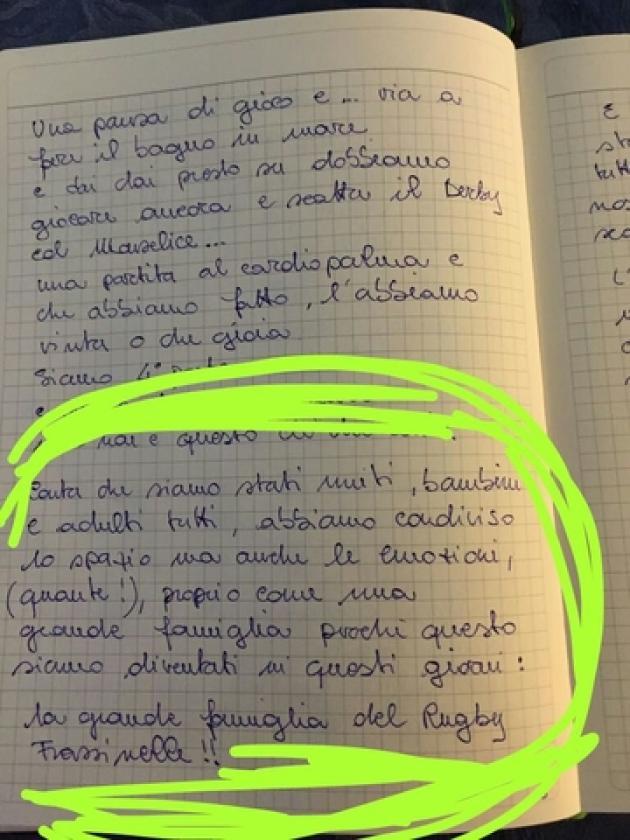 Una pausa di gioco e... via a
fare il bagno in mare
e dai dai presto su dobbiamo
giocare ancora e scatta il Derby
col Monselice...
una partita al cardiopalma e
che abbiamo fatto, l'abbiamo
vinta o che gioia
Siamo
mai e questo
Conta che siamo stati uniti, bambini
e adulti tutti, abbiamo condiviso
lo spazio ma anche le emozioni,
(quante!), proprio come una
grande famiglia perchè questo
siamo diventati in questi giorni:
la grande famiglia del Rugby
Frassinelle!!
E